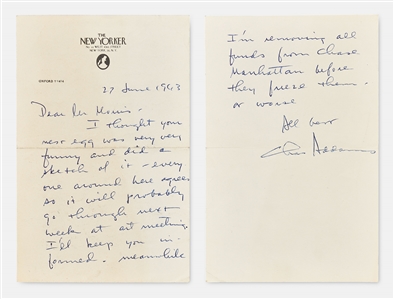 THE
NEW YORKER
No. 25 WEST 43rd STREET
NEW YORK 36, N.Y.
OXFORD 5-1414
27 June 1963
Dear Les Morris -
I thought your
nest egg was very very
funny and did a
sketch of it - every
one around here agrees
so it will probably
go through next
week at art meeting.
I'll keep you in-
formed. meanwhile
I'm removing all
funds from Chase
Manhattan before
they freeze them -
or worse
All best
Chas Addams